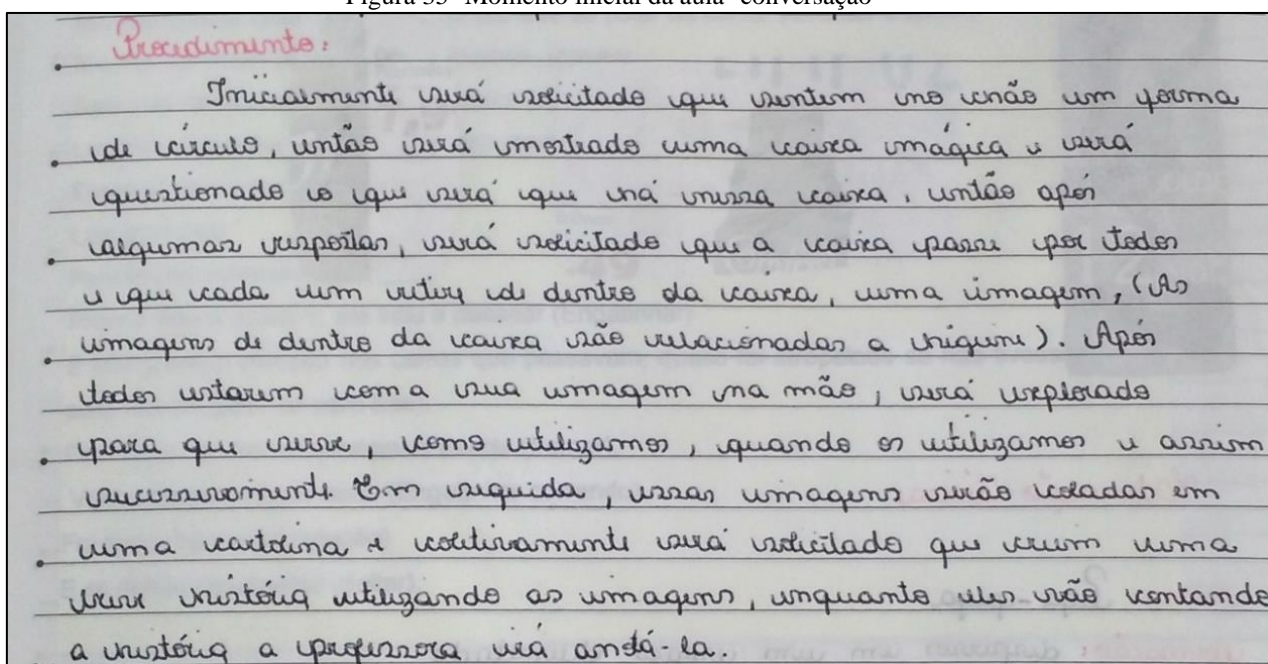 Figura 35- Momento inicial da aula- conversação
Procedimento:
Inicialmente será solicitado que sentem no chão um forma
de círculo, então será mostrado uma caixa mágica e será
questionado o que será que há nessa caixa, então após
algumas respostas, será solicitado que a caixa passe por todos
e que cada um retire de dentro da caixa, uma imagem, (As
imagens de dentro da caixa são relacionadas a higiene). Após
todos estarem com a sua imagem na mão, será explorado
para que serve, como utilizamos, quando os utilizamos e assim
sucessivamente. Em seguida, essas imagens serão coladas em
uma cartolina e coletivamente será solicitado que criem uma
breve história utilizando as imagens, enquanto eles vão contando
a história a professora irá anotá-la.